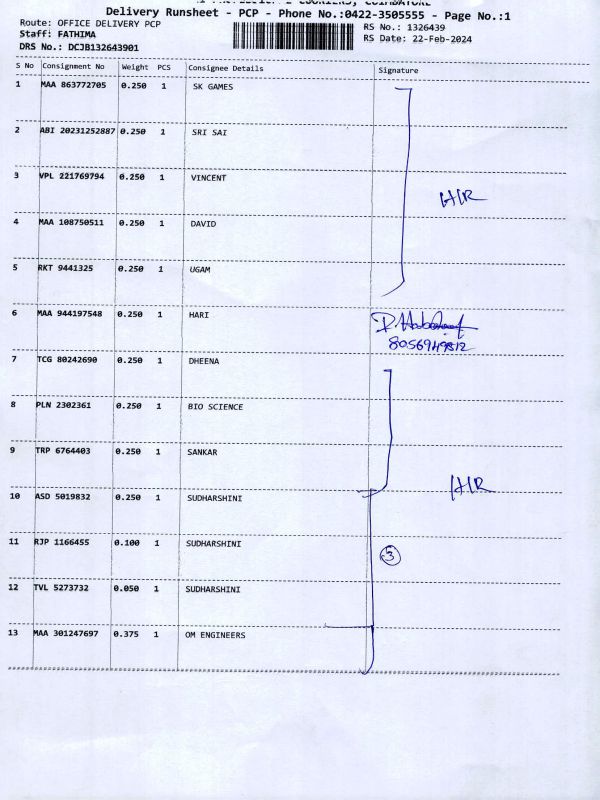 Delivery Runsheet - PCP - Phone No.:0422-3505555 - Page No.:1
Route: OFFICE DELIVERY PCP
RS No.: 1326439
Staff: FATHIMA
RS Date: 22-Feb-2024
DRS No.: DCJB132643901
S No Consignment No Weight PCS Consignee Details Signature
1 MAA 863772705 0.250 1 SK GAMES
2 ABI 20231252887 0.250 1 SRI SAI
3 VPL 221769794 0.250 1 VINCENT
HR
4 MAA 108750511 0.250 1 DAVID
5 RKT 9441325 0.250 1 UGAM
6 MAA 944197548 0.250 1 HARI
7 TCG 80242690 0.250 1 DHEENA
8 PLN 2302361 0.250 1 BIO SCIENCE
9 TRP 6764403 0.250 1 SANKAR
HR
10 ASD 5019832 0.250 1 SUDHARSHINI
11 RJP 1166455 0.100 1 SUDHARSHINI
3
12 TVL 5273732 0.050 1 SUDHARSHINI
13 MAA 301247697 0.375 1 OM ENGINEERS